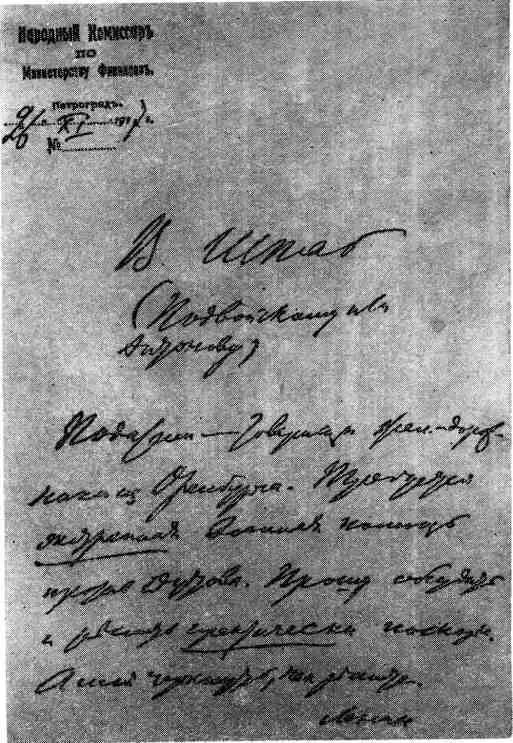 Народный Комиссаръ
по
Министерству Финансовъ.
Петроградъ.
26 XI 1917 г.
№
В Штаб
(Подвойскому или
Антонову)
Податели — товарищи железнодорож-
ники из Оренбурга. Требуется
экстренная военная помощь
против Дутова. Прошу обсудить
и решить практически поскорее.
А мне черкнуть, как решите.
Ленин